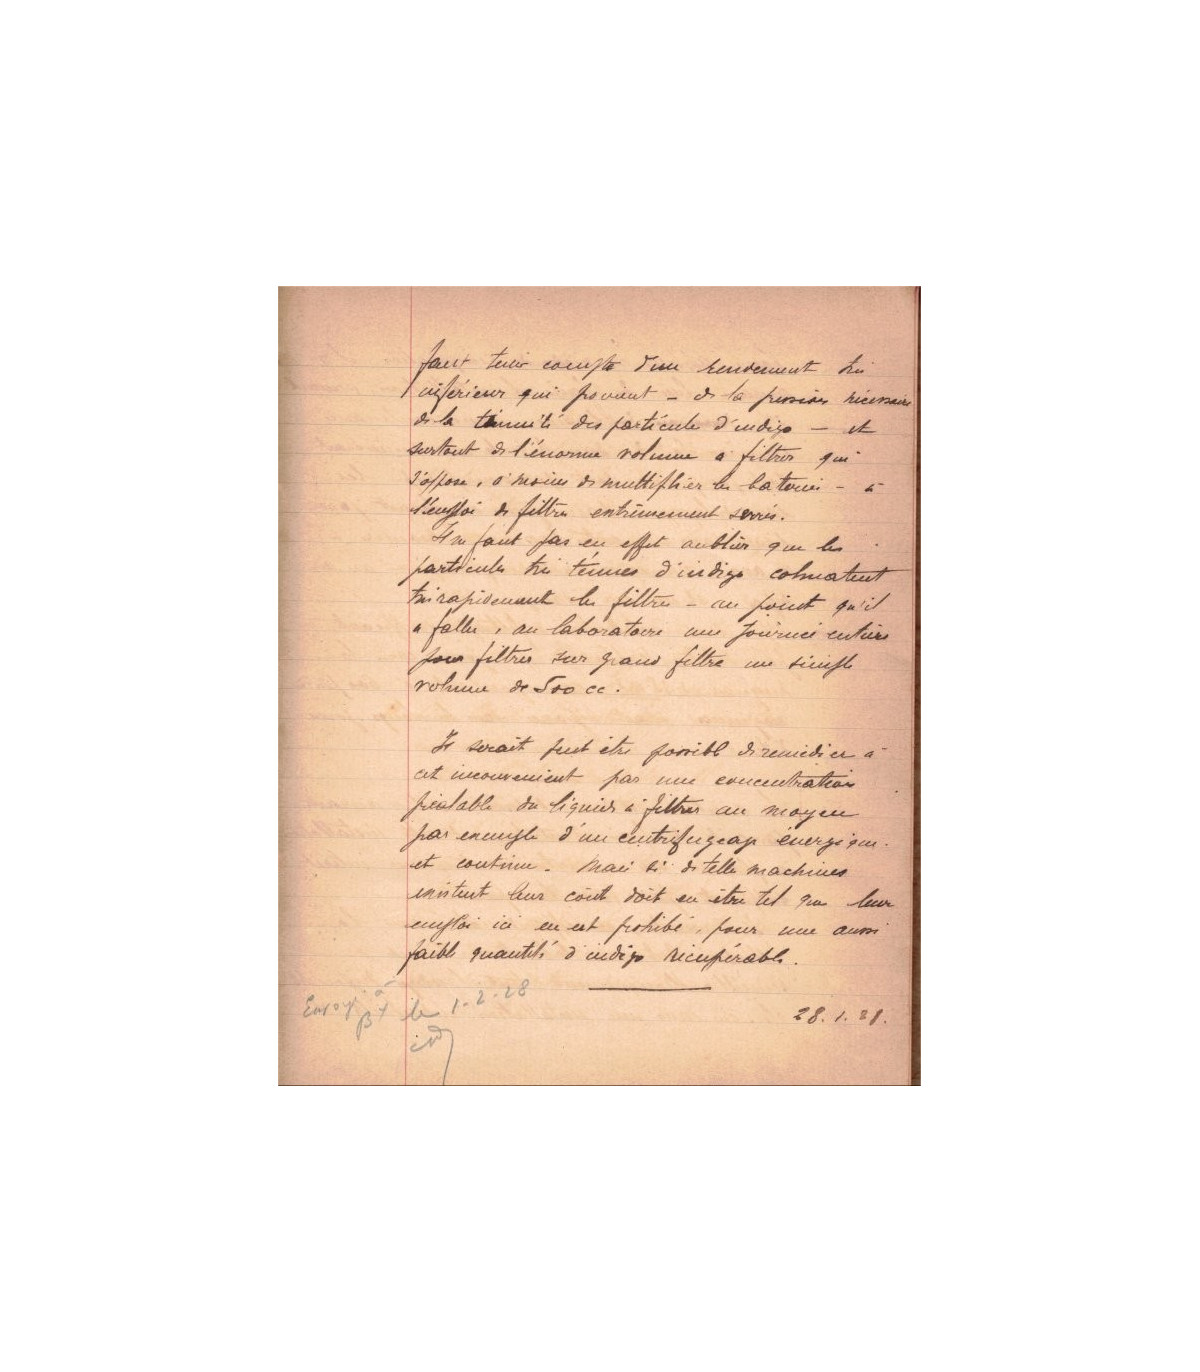 faut tenir compte d'un rendement très
inférieur qui provient - de la pression nécessaire
de la ténuité des particules d'indigo - et
surtout de l'énorme volume à filtrer qui
s'oppose, à moins de multiplier les batteries - à
l'emploi de filtres extrêmement serrés.
Il ne faut pas en effet oublier que les
particules très ténues d'indigo colmatent
très rapidement les filtres - au point qu'il
a fallu, au laboratoire une journée entière
pour filtrer sur grand filtre un simple
volume de 500 cc.
Il serait peut être possible de remédier à
cet inconvenient par une concentration
préalable du liquide à filtrer au moyen
par exemple d'un centrifugeage énergique
et continu. Mais si de telles machines
existent leur coût doit en être tel que leur
emploi ici en est prohibé, pour une aussi
faible quantité d'indigo récupérable.
Envoyé à Bx le 1-2-28
28.1.28.